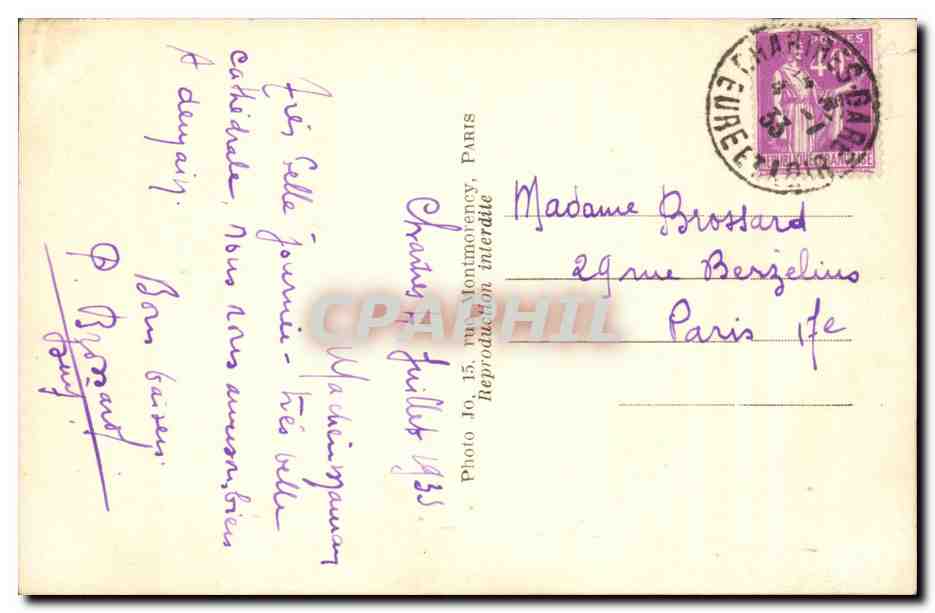 Chartres 14 Juillet 1935.
Ma chère Maman
Très belle journée - très belle
cathédrale, nous nous amusons bien
A demain.
Bons baisers.
P. Brossard
Photo Jo, 15, rue Montmorency, PARIS
Reproduction interdite
POSTES
CHARTRES-GARE
EURE ET LOIR
Madame Brossard
29 rue Berzelius
Paris 17e
CPAPHIL